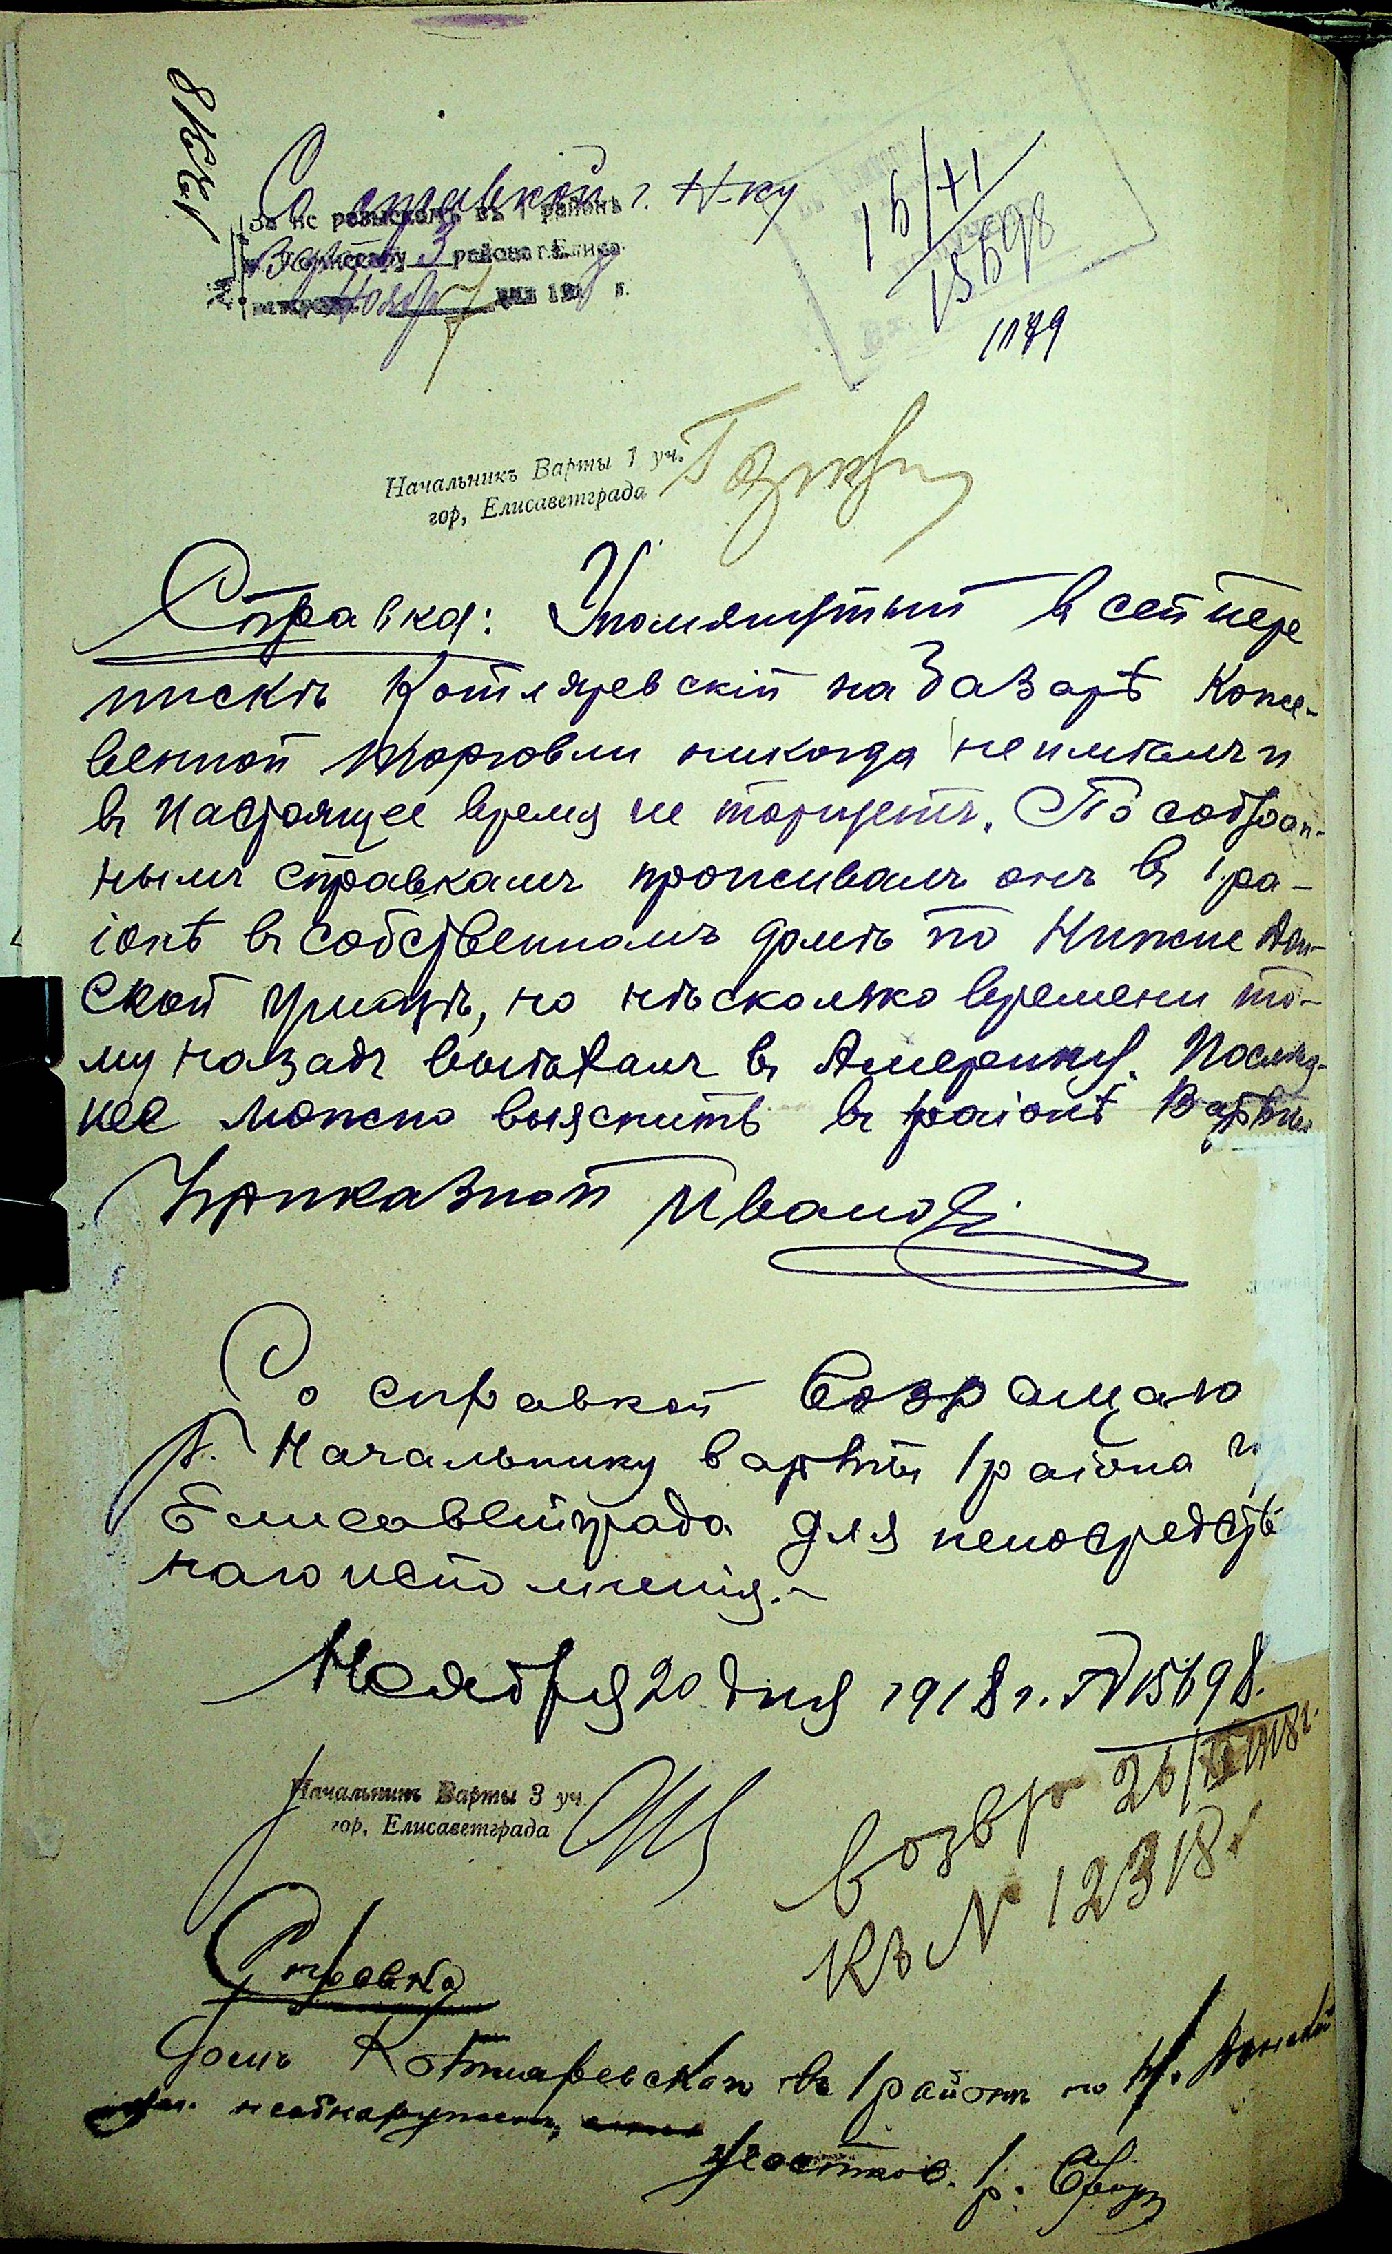 Со справкой г. Н-ку
За не розыскомъ въ 1 районѣ
Варты 3 района г. Елиса
Ноября 7 дня 191 г.
16/XI
15698
1179
Начальникъ Варты 1 уч.
гор, Елисаветграда
Справка: Упомянутый в сей пере
пискѣ Котляревскій на базарѣ коже-
венной торговли никогда неимѣлъ и
въ настоящее время не торгуетъ. По собран-
нымъ справкамъ проживалъ онъ въ 1 ра-
іонѣ въ собственномъ домѣ по Нижне Дон-
ской улицѣ, но нѣсколько времени то-
му назадъ выѣхалъ въ Америку. Послѣд-
нее можно выяснить въ 1 раіонѣ Варты
Приказной Иванов
Со справкой возращаю
Г. Начальнику варты 1 раіона г.
Елисаветграда для непосредств
наго исполненія.-
Ноября 20 дня 1918 г. № 15698.
Начальникъ Варты 3 уч.
гор, Елисаветграда
возвр 26/XI 1918 г.
къ № 12318
Справка
Домъ Котляревскаго въ 1 районѣ по Н. Донской
ул. необнаруженъ,
Участков. 1 р.